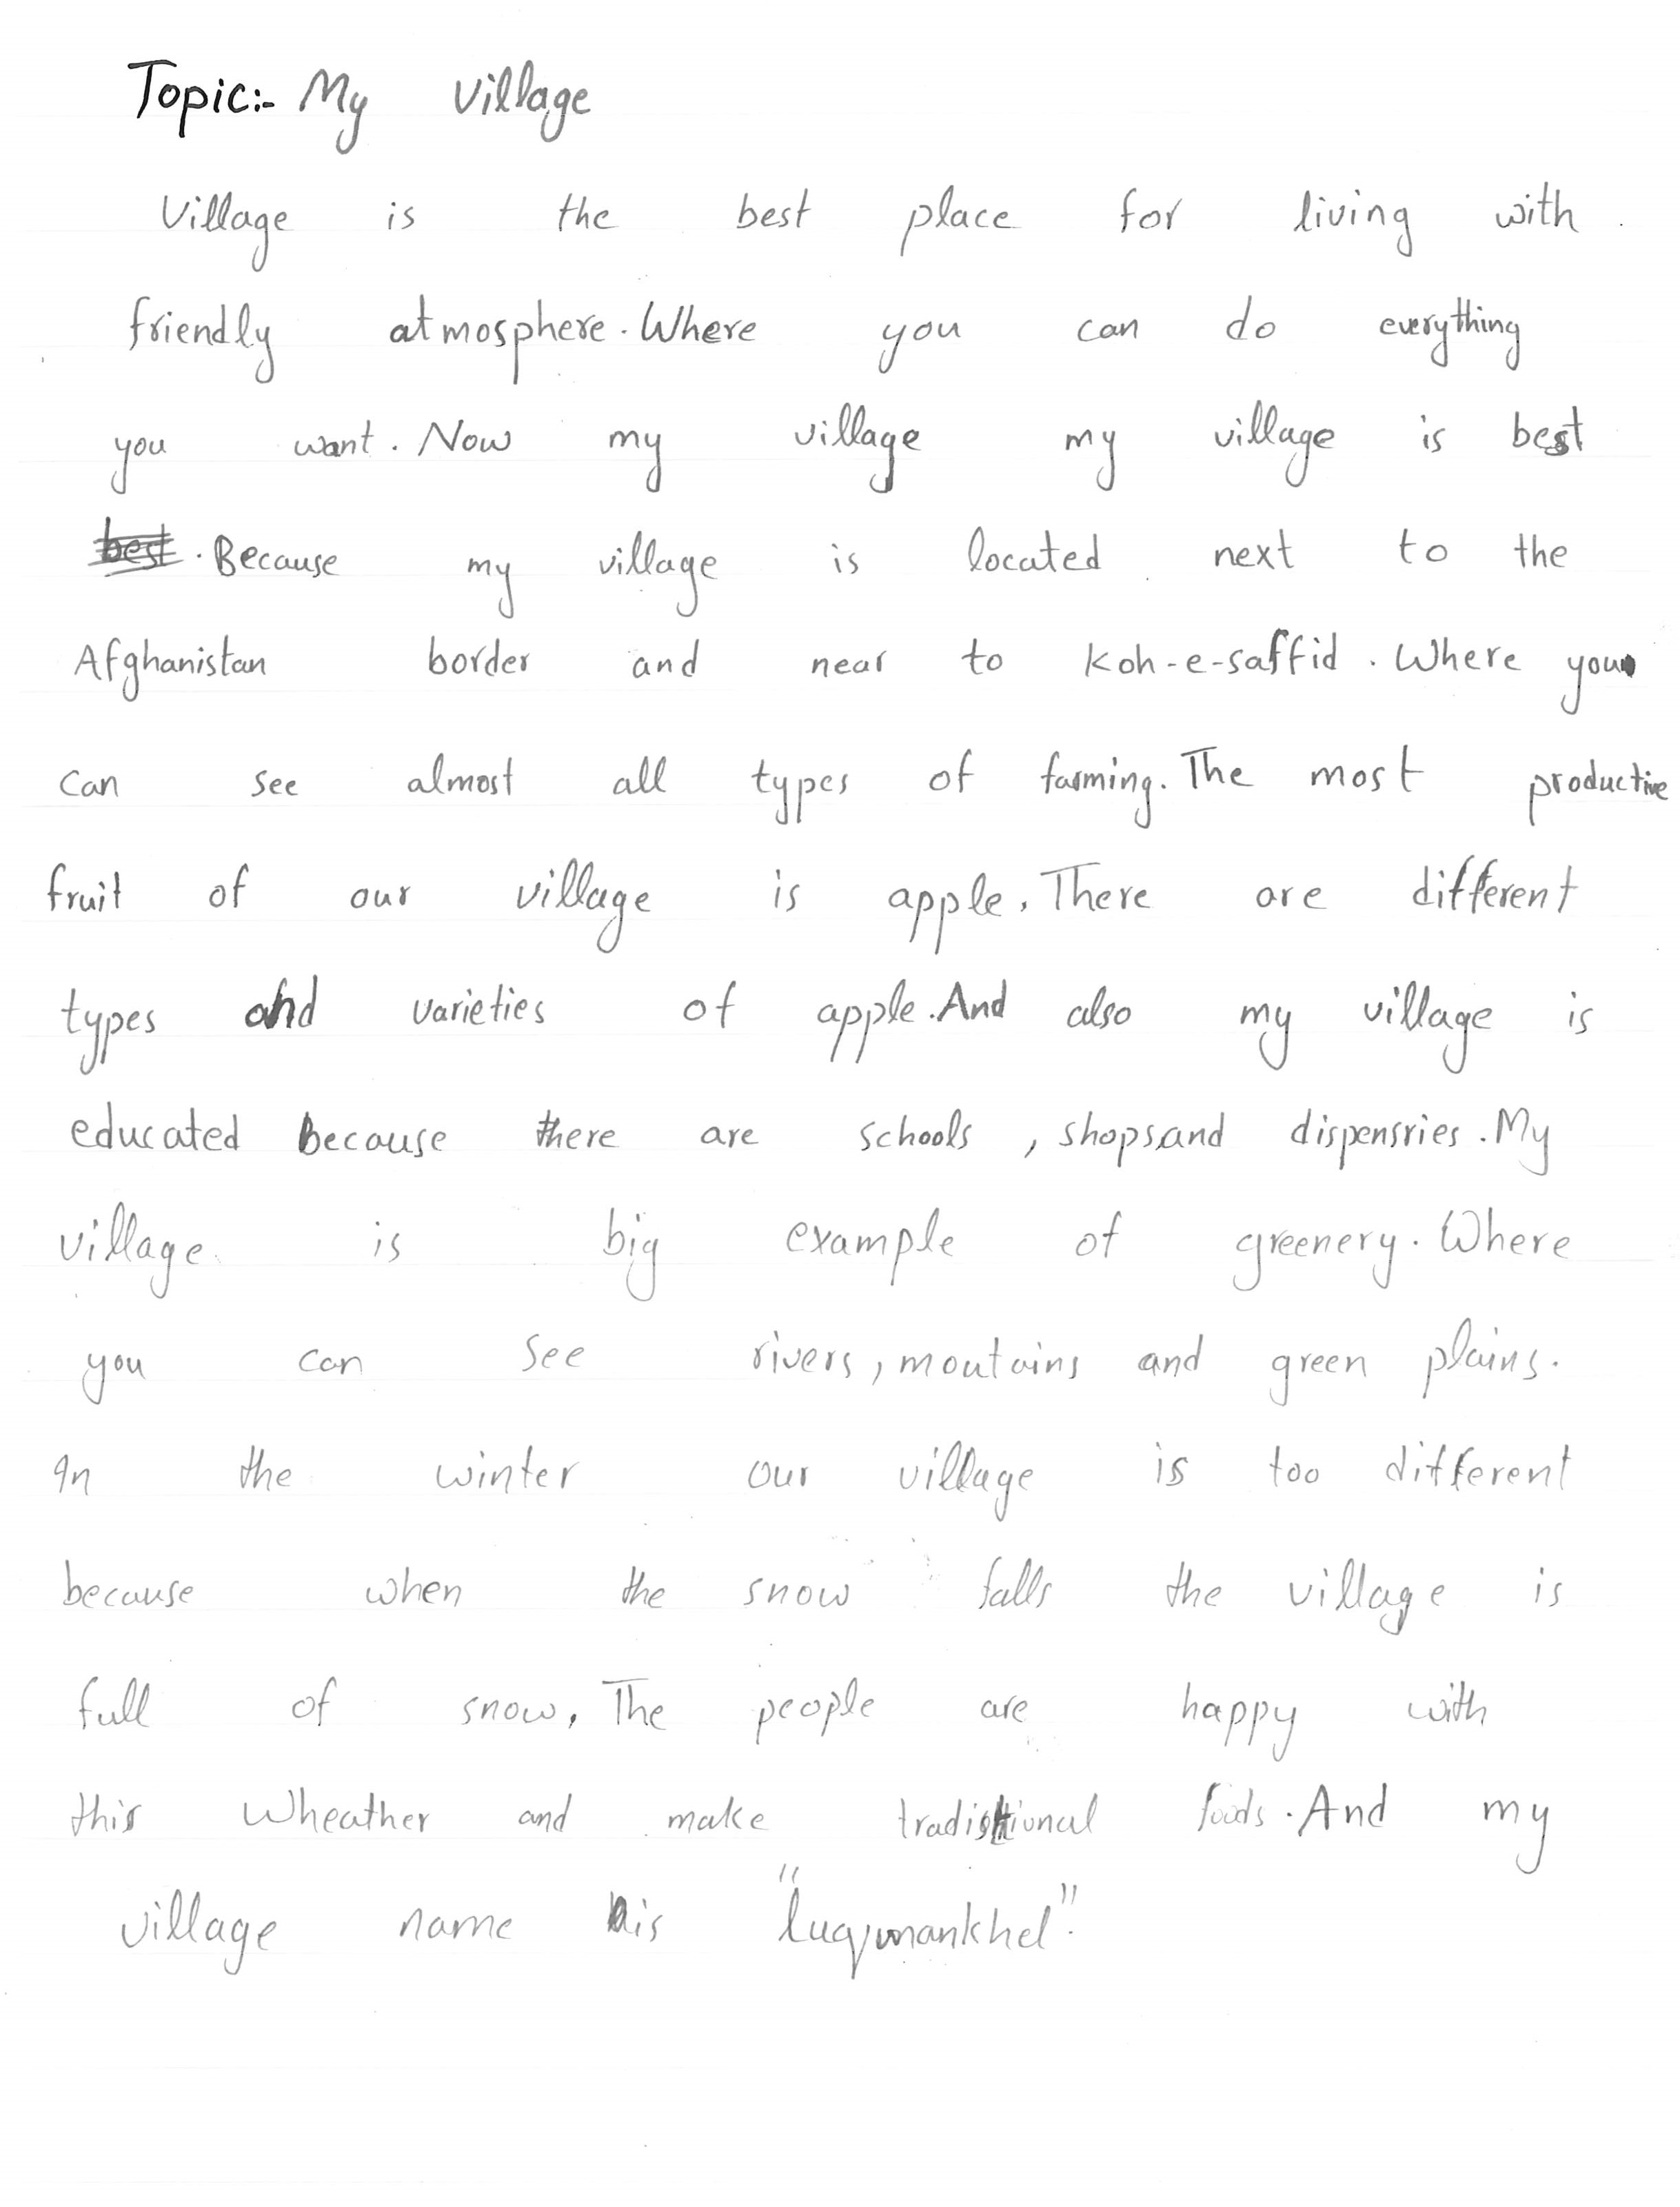 Topic:- My Village
Village is the best place for living with
friendly atmosphere. Where you can do everything
you want. Now my village my village is best
best. Because my village is located next to the
Afghanistan border and near to Koh-e-saffid. Where you
can see almost all types of farming. The most productive
fruit of our village is apple. There are different
types and varieties of apple. And also my village is
educated because there are schools, shops and dispensries. My
village is big example of greenery. Where
you can see rivers, moutains and green plains.
In the winter our village is too different
because when the snow falls the village is
full of snow. The people are happy with
this Wheather and make traditional foods. And my
village name is "luqmankhel".